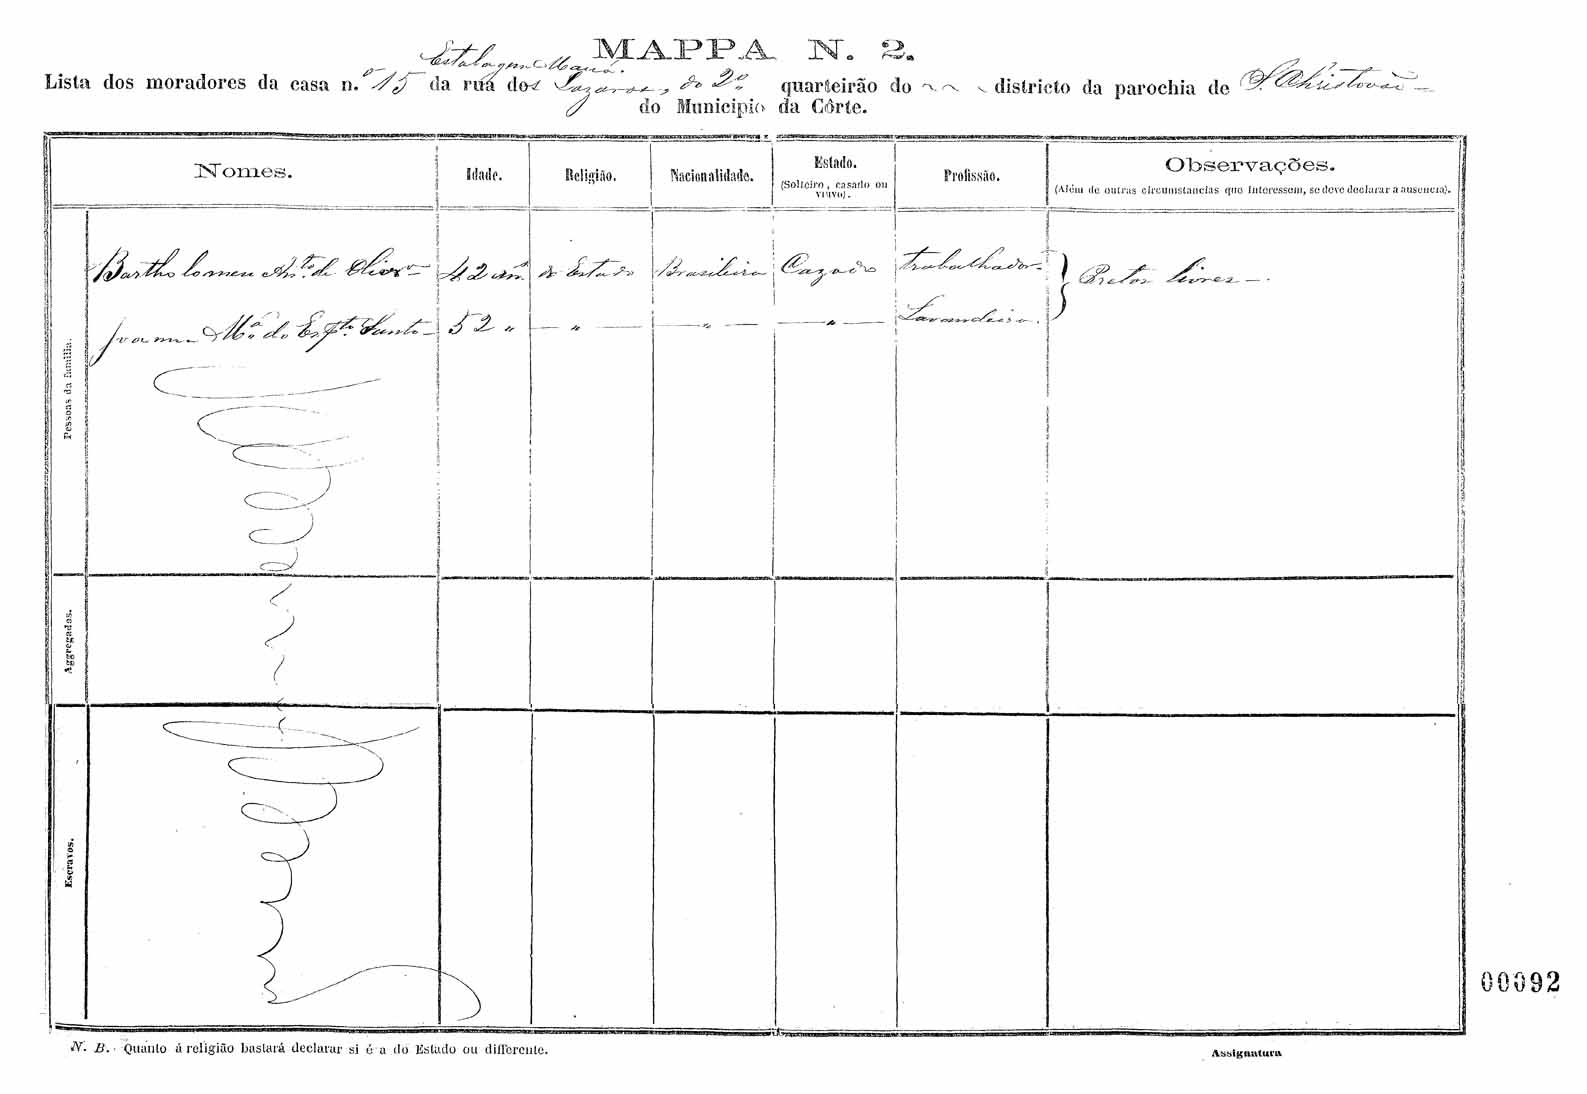 MAPPA N. 2.
Estalagem Mauá.
Lista dos moradores da casa n.º 15 da rua dos Lazaros, do 2º quarteirão do ~ ~ districto da parochia de S. Christovão —
do Municipio da Côrte.
Nomes. Idade. Religião. Nacionalidade. Estado. (Solteiro, casado ou viuvo). Profissão. Observações. (Além de outras circumstancias que interessem, se deve declarar a ausencia).
Pessoas da familia.
Bartholomeu Antº de Olivrª 42 anns do Estado Brasileiro Cazado trabalhador. } Pretos livres —.
Joanna Mª do Espto Santo — 52 " — " — — " — — " — Lavandeira.
Aggregados.
Escravos.
00092
N. B. Quanto á religião bastará declarar si é a do Estado ou differente.
Assignatura